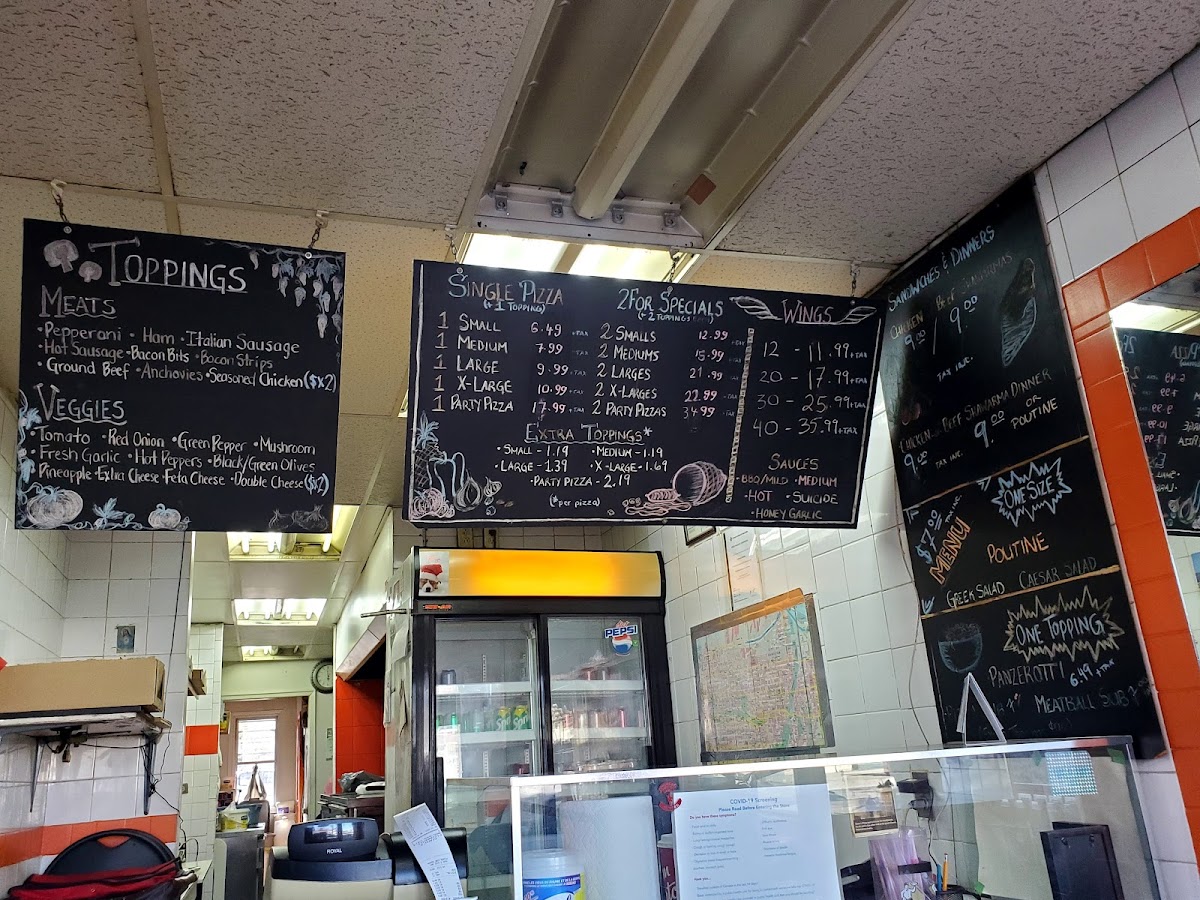 TOPPINGS
MEATS
•Pepperani • Ham •Italian Sausage
•Hot Sausage •Bacon Bits • Bacon Strips
• Ground Beef •Anchovies •Seasoned Chicken ($x2)
VEGGIES
•Tomato •Red Onion •Green Pepper •Mushroom
•Fresh Garlic • Hot Peppers •Black/Green Olives
•Pineapple •Extra Cheese •Feta Cheese •Double Cheese ($x2)
SINGLE PIZZA
(+1 TOPPING)
1 SMALL 6.49 +TAX
1 MEDIUM 7.99 +TAX
1 LARGE 9.99 +TAX
1 X-LARGE 10.99 +TAX
1 PARTY PIZZA 17.99 +TAX
2 FOR SPECIALS
(+2 TOPPINGS)
2 SMALLS 12.99 +TAX
2 MEDIUMS 15.99 +TAX
2 LARGES 21.99 +TAX
2 X-LARGES 22.99 +TAX
2 PARTY PIZZAS 34.99 +TAX
EXTRA TOPPINGS*
•SMALL - 1.19 •MEDIUM - 1.19
•LARGE - 1.39 •X-LARGE - 1.69
•PARTY PIZZA - 2.19
(*per pizza)
WINGS
12 - 11.99 +TAX
20 - 17.99 +TAX
30 - 25.99 +TAX
40 - 35.99 +TAX
SAUCES
•BBQ/MILD •MEDIUM
•HOT •SUICIDE
•HONEY GARLIC
SANDWICHES & DINNERS
CHICKEN BEEF SHAWARMAS
9.00 / 9.00
TAX INC.
CHICKEN BEEF SHAWARMA DINNER
9.00 9.00 OR POUTINE
TAX INC.
ONE SIZE
$7.00 TAX INC.
MENU
POUTINE
GREEK SALAD CAESAR SALAD
ONE TOPPING
PANZEROTTI 6.49 +TAX
MEATBALL SUB
PEPSI
ROYAL
COVID-19 Screening
Please Read Before Entering the Store
Do you have these symptoms?